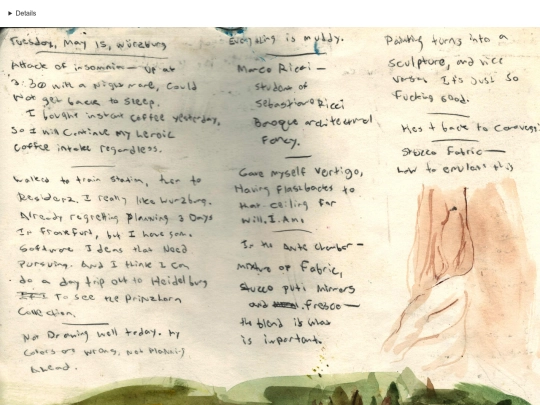 Details
Tuesday, May 15, Würzburg
Attack of insomnia – up at
3:30 with a nightmare, could
not get back to sleep.
I bought instant coffee yesterday,
so I will continue my heroic
coffee intake regardless.
Walked to train station, then to
Residenz. I really like Würzburg.
Already regretting planning 3 days
in Frankfurt, but I have some
software ideas that need
pursuing. And I think I can
do a day trip out to Heidelburg
to see the Prinzhorn
Collection.
Not drawing well today. My
colors are wrong, not planning
ahead.
Everything is muddy.
Marco Ricci –
student of
Sebastiano Ricci
Baroque architectural
Fancy.
Gave myself vertigo,
Having flashbacks to
that ceiling for
Will.I.Am.
In the antechamber –
mixture of Fabric,
stucco putti mirrors
and fresco –
the blend is what
is important.
Painting turns into a
sculpture, and vice
versa. It's just so
fucking good.
back to
Stucco Fabric –
how to emulate this